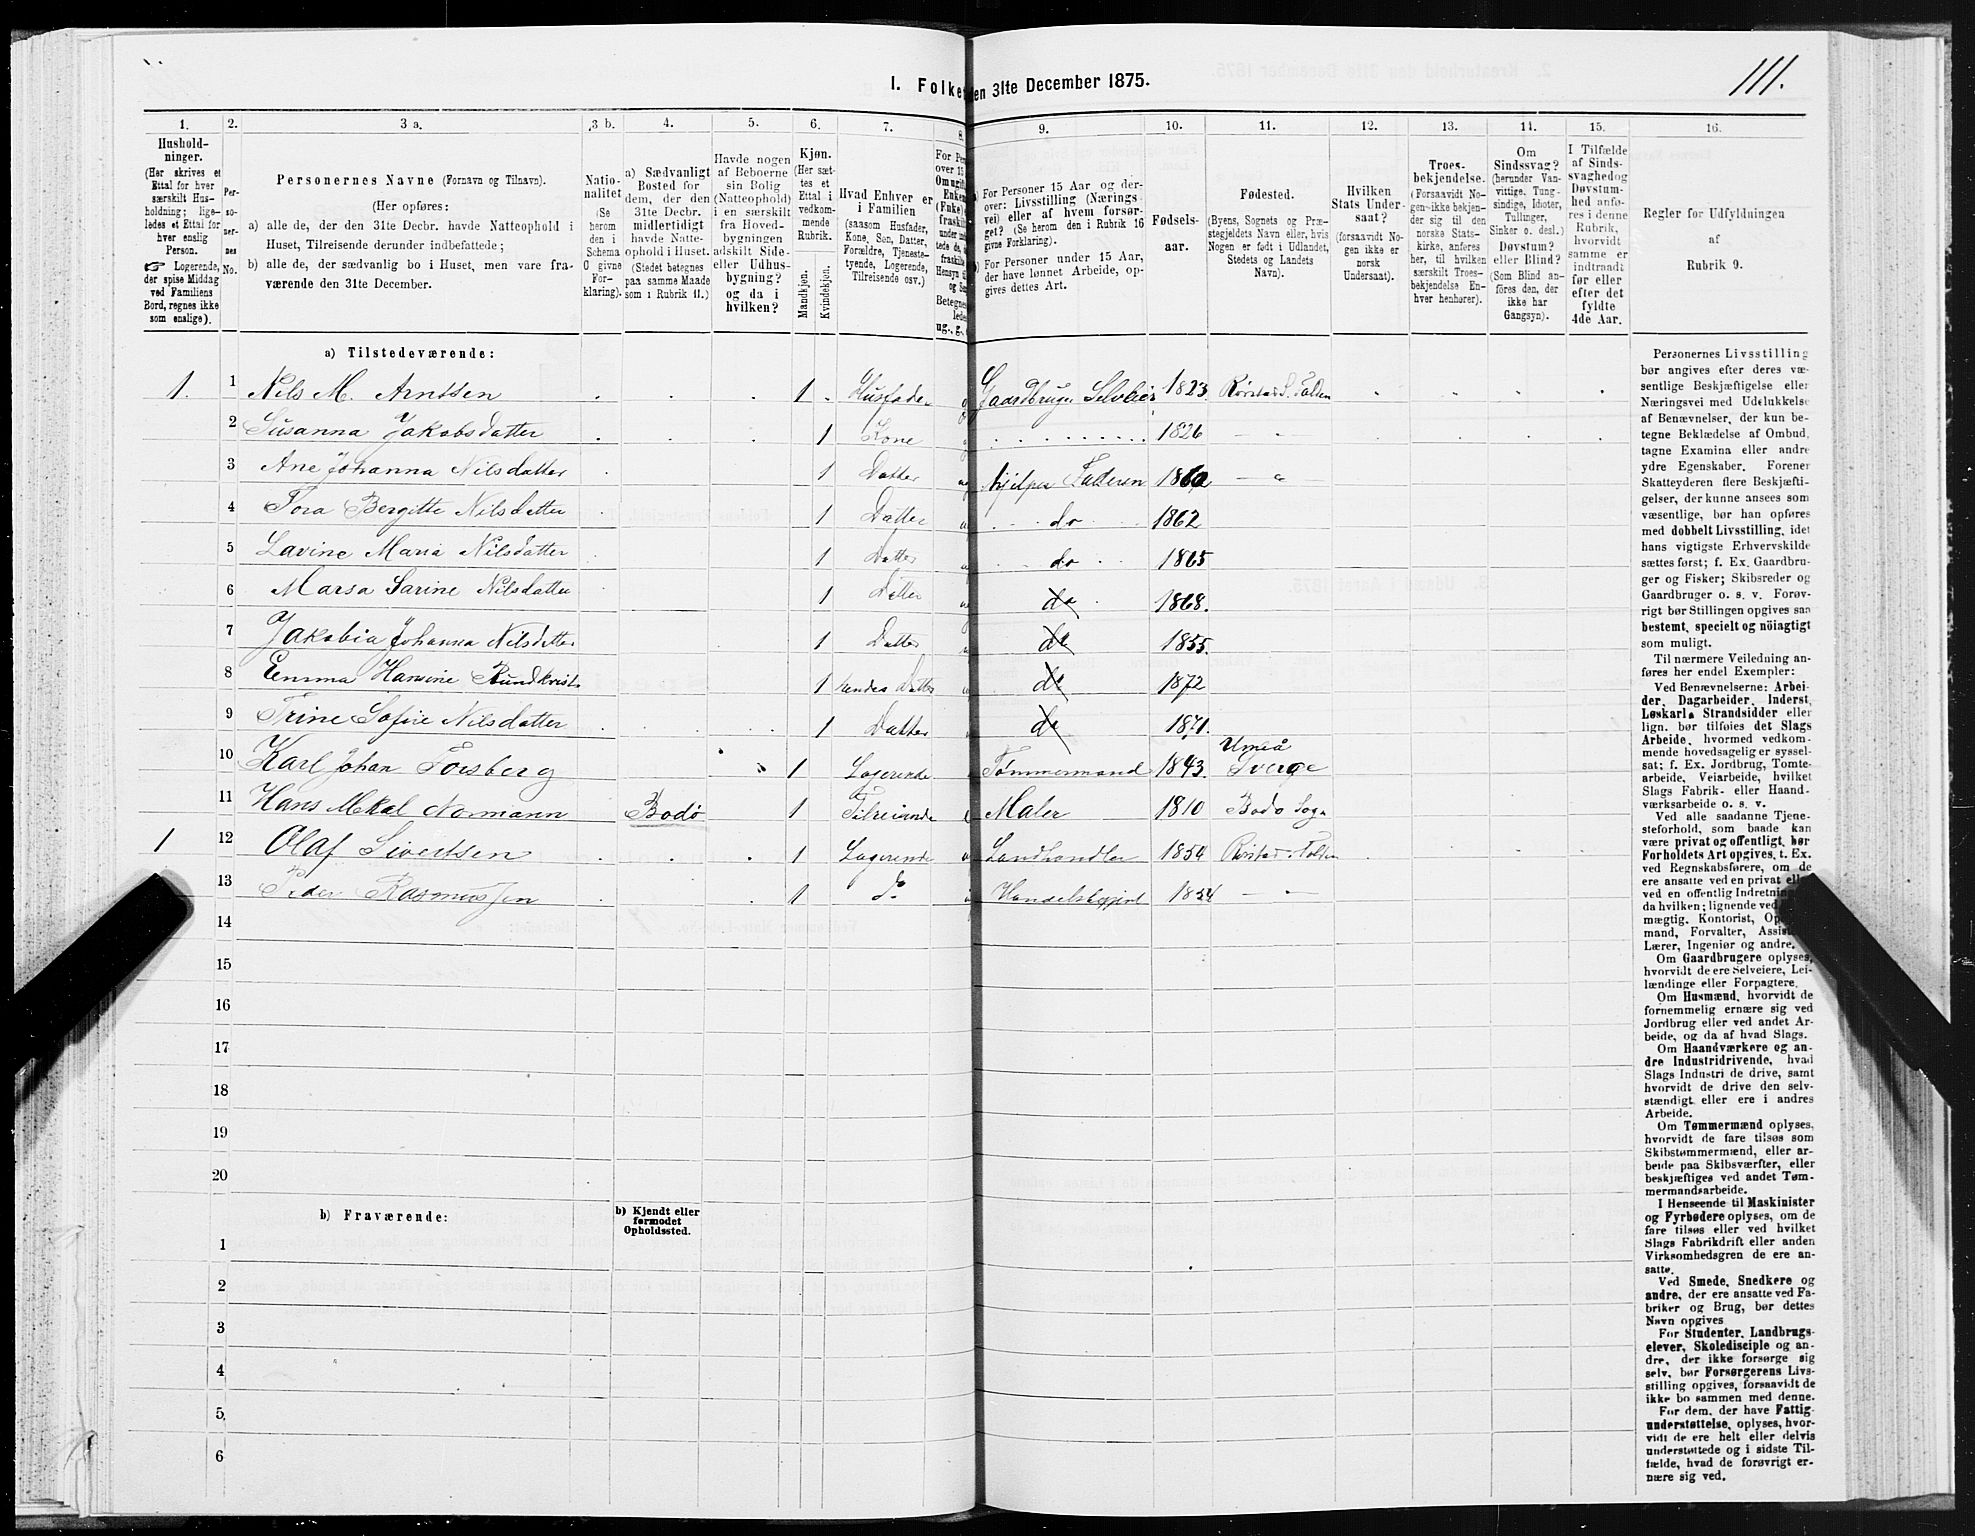 111.
I. Folke
den 31te December 1875.
1. 2. 3 a. 3 b. 4. 5. 6. 7. 8. 9. 10. 11. 12. 13. 14. 15. 16.
Hushold-
ninger.
(Her skrives et
Ettal for hver
særskilt Hus-
holdning; lige-
ledes et Ettal for
hver enslig
Person.
☞ Logerende,
der spise Middag
ved Familiens
Bord, regnes ikke
som enslige).
Per-
so-
ner-
nes
No.
Personernes Navne (Fornavn og Tilnavn).
(Her opføres:
a) alle de, der den 31te Decbr. havde Natteophold i
Huset, Tilreisende derunder indbefattede;
b) alle de, der sædvanlig bo i Huset, men vare fra-
værende den 31te December.
Natio-
nalitet
(Se
herom
den i
Schema
O givne
For-
klaring).
a) Sædvanligt
Bosted for
dem, der den
31te Decbr.
midlertidigt
havde Natte-
ophold i Huset.
(Stedet betegnes
paa samme Maade
som i Rubrik 11.)
Havde nogen
af Beboerne
sin Bolig
(Natteophold)
i en særskilt
fra Hoved-
bygningen
adskilt Side-
eller Udhus-
bygning?
og da i
hvilken?
Kjøn.
(Her sæt-
tes et
Ettal i
vedkom-
mende
Rubrik.
Mandkjøn.
Kvindekjøn.
Hvad Enhver er
i Familien
(saasom Husfader,
Kone, Søn, Datter,
Forældre, Tjeneste-
tyende, Logerende,
Tilreisende osv.)
For Per
over 15
Omugift
Enken
(Fnke)
fraskil
under in
tede de, o
fraskilt
Hensyn ti
og Se
Betegnes
lede
ug., g.,
a) For Personer 15 Aar og der-
over: Livsstilling (Nærings-
vei) eller af hvem forsør-
get? (Se herom den i Rubrik 16
givne Forklaring).
b) For Personer under 15 Aar,
der have lønnet Arbeide, op-
gives dettes Art.
Fødsels-
aar.
Fødested.
(Byens, Sognets og Præ-
stegjeldets Navn eller, hvis
Nogen er født i Udlandet,
Stedets og Landets
Navn).
Hvilken
Stats Under-
saat?
(forsaavidt No-
gen ikke er
norsk
Undersaat).
Troes-
bekjendelse.
(Forsaavidt No-
gen ikke bekjen-
der sig til den
norske Stats-
kirke, anføres
her, til hvilken
særskilt Troes-
bekjendelse En-
hver henhører).
Om
Sindssvag?
(herunder Van-
vittige, Tung-
sindige, Idioter,
Tullinger,
Sinker o. desl.)
Døvstum?
eller Blind?
(Som Blind an-
føres den, der
ikke har
Gangsyn).
I Tilfælde
af Sinds-
svaghed og
Døvstum-
hed anfø-
res i denne
Rubrik,
hvorvidt
samme er
indtraadt
før eller
efter det
fyldte
4de Aar.
Regler for Udfyldningen
af
Rubrik 9.
a) Tilstedeværende:
1. 1 Nils M. Arntsen 1 Husfader Gaardbruger Selveier 1823 Rørstad S. Folden
2 Susanna Jakobsdatter 1 Kone 1826 — " —
3 Ane Johanna Nilsdatter 1 Datter hjelper Faderen 1860 — " —
4 Tora Bergitte Nilsdatter 1 Datter do 1862
5 Lavine Maria Nilsdatter 1 Datter do 1865
6 Marsa Sarine Nilsdatter 1 Datter do 1868.
7 Jakobia Johanna Nilsdatter 1 Datter do 1855.
8 Emma Hansine Rundkvist 1 hendes Datter do 1872
9 Trine Sofie Nilsdatter 1 Datter do 1871.
10 Karl Johan Forsberg 1 Logerende Tømmermand 1843. Umeå Sverge
11 Hans Mikal Normann Bodø 1 Tilreisende Maler 1810 Bodø Sogn
1 12 Olaf Sivertsen 1 Logerende Landhandler 1854 Rørstad Folden
13 Peder Rasmussen 1 do Handelsbetjent 1854 — " —
14
15
16
17
18
19
20
b) Fraværende:
b) Kjendt eller
formodet
Opholdssted.
1
2
3
4
5
6
Personernes Livsstilling
bør angives efter deres væ-
sentlige Beskjæftigelse eller
Næringsvei med Udelukkelse
af Benævnelser, der kun be-
tegne Beklædelse af Ombud,
tagne Examina eller andre
ydre Egenskaber. Forener
Skatteyderen flere Beskjæfti-
gelser, der kunne ansees som
væsentlige, bør han opføres
med dobbelt Livsstilling, idet
hans vigtigste Erhvervskilde
sættes først; f. Ex. Gaardbru-
ger og Fisker; Skibsreder og
Gaardbruger o. s. v. Forøv-
rigt bør Stillingen opgives saa
bestemt, specielt og nöiagtigt
som muligt.
Til nærmere Veiledning an-
føres her endel Exempler:
Ved Benævnelserne: Arbei-
der, Dagarbeider, Inderst,
Løskarl, Strandsidder eller
lign. bør tilføies det Slags
Arbeide, hvormed vedkom-
mende hovedsagelig er syssel-
sat; f. Ex. Jordbrug, Tomte-
arbeide, Veiarbeide, hvilket
Slags Fabrik- eller Haand-
værksarbeide o. s. v.
Ved alle saadanne Tjene-
steforhold, som baade kan
være privat og offentligt, bør
Forholdets Art opgives, t. Ex.
ved Regnskabsførere, om de
ere ansatte ved en privat eller
ved en offentlig Indretning
da hvilken; lignende ved
mægtig, Kontorist, Op
mand, Forvalter, Assist
Lærer, Ingeniør og andre.
Om Gaardbrugere oplyses,
hvorvidt de ere Selveiere, Lei-
lændinge eller Forpagtere.
Om Husmænd, hvorvidt de
fornemmelig ernære sig ved
Jordbrug eller ved andet Ar-
beide, og da af hvad Slags.
Om Haandværkere og an-
dre Industridrivende, hvad
Slags Industri de drive, samt
hvorvidt de drive den selv-
stændigt eller ere i andres
Arbeide.
Om Tømmermænd oplyses,
hvorvidt de fare tilsøs som
Skibstømmermænd, eller ar-
beide paa Skibsværfter, eller
beskjæftiges ved andet Tøm-
mermandsarbeide.
I Henseende til Maskinister
og Fyrbødere oplyses, om de
fare tilsøs eller ved hvilket
Slags Fabrikdrift eller anden
Virksomhedsgren de ere an-
satte.
Ved Smede, Snedkere og
andre, der ere ansatte ved Fa-
briker og Brug, bør dettes
Navn opgives
For Studenter, Landbrugs-
elever, Skoledisciple og an-
dre, der ikke forsørge sig
selv, bør Forsørgerens Livs-
stilling opgives, forsaavidt de
ikke bo sammen med denne.
For dem, der have Fattig-
understøttelse, oplyses, hvor-
vidt de ere helt eller delvis
understøttede og i sidste Til-
fælde, hvad de forøvrigt er-
nære sig ved.